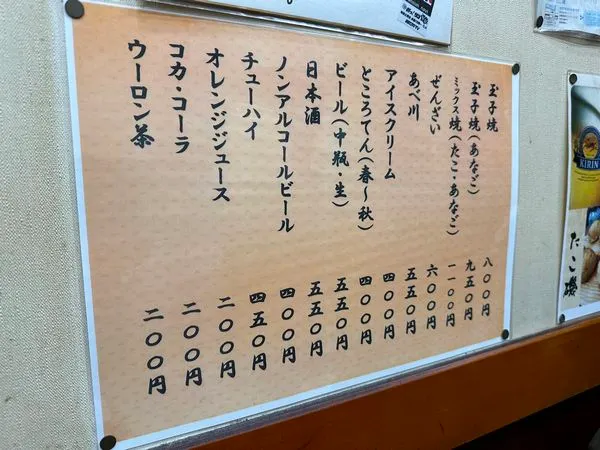 玉子焼 八〇〇円
玉子焼(あなご) 九五〇円
ミックス焼(たこ・あなご) 一一〇〇円
ぜんざい 六〇〇円
あべ川 五五〇円
アイスクリーム 四〇〇円
ところてん(春〜秋) 四〇〇円
ビール(中瓶・生) 五五〇円
日本酒 五五〇円
ノンアルコールビール 四〇〇円
チューハイ 四五〇円
オレンジジュース 二〇〇円
コカ・コーラ 二〇〇円
ウーロン茶 二〇〇円
KIRIN
たこ磯